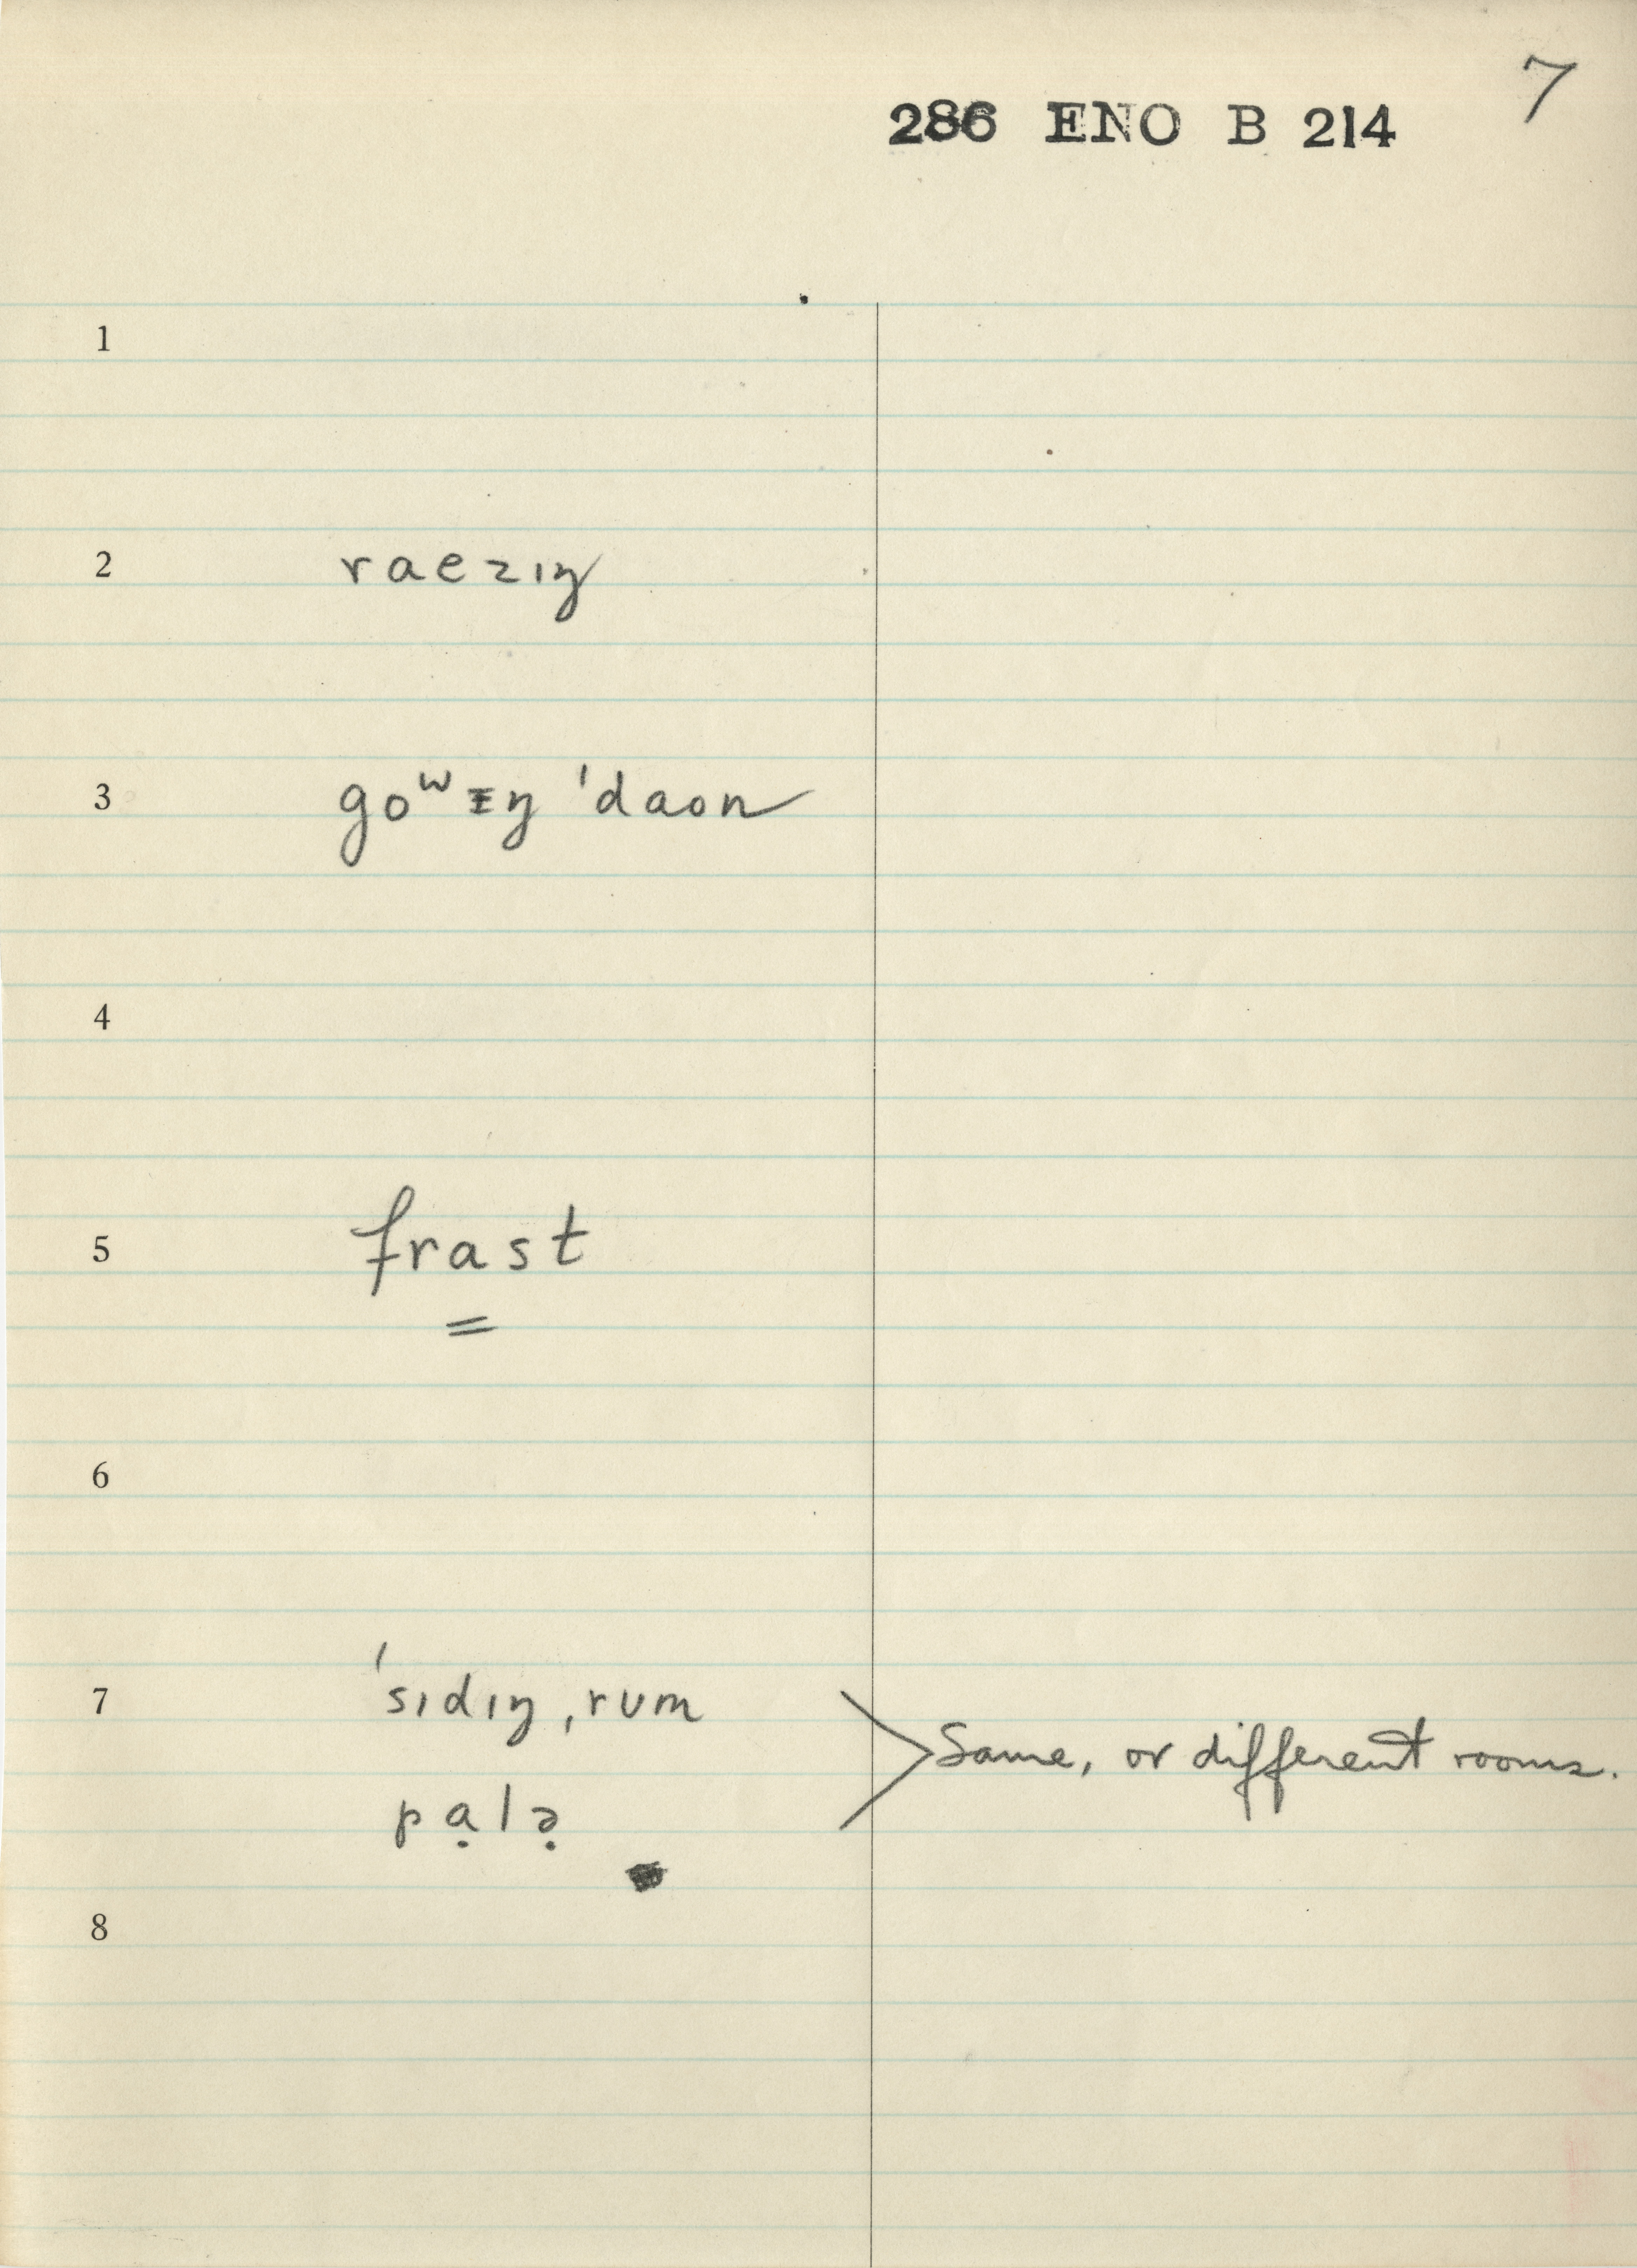 7
286 ENO B 214
1
2 raezɪŋ
3 goʷɪŋ ˈdaon
4
5 frast
6
7 ˈsɪdɪŋ ˌrʊm
Same, or different rooms.
pạlə̣
8